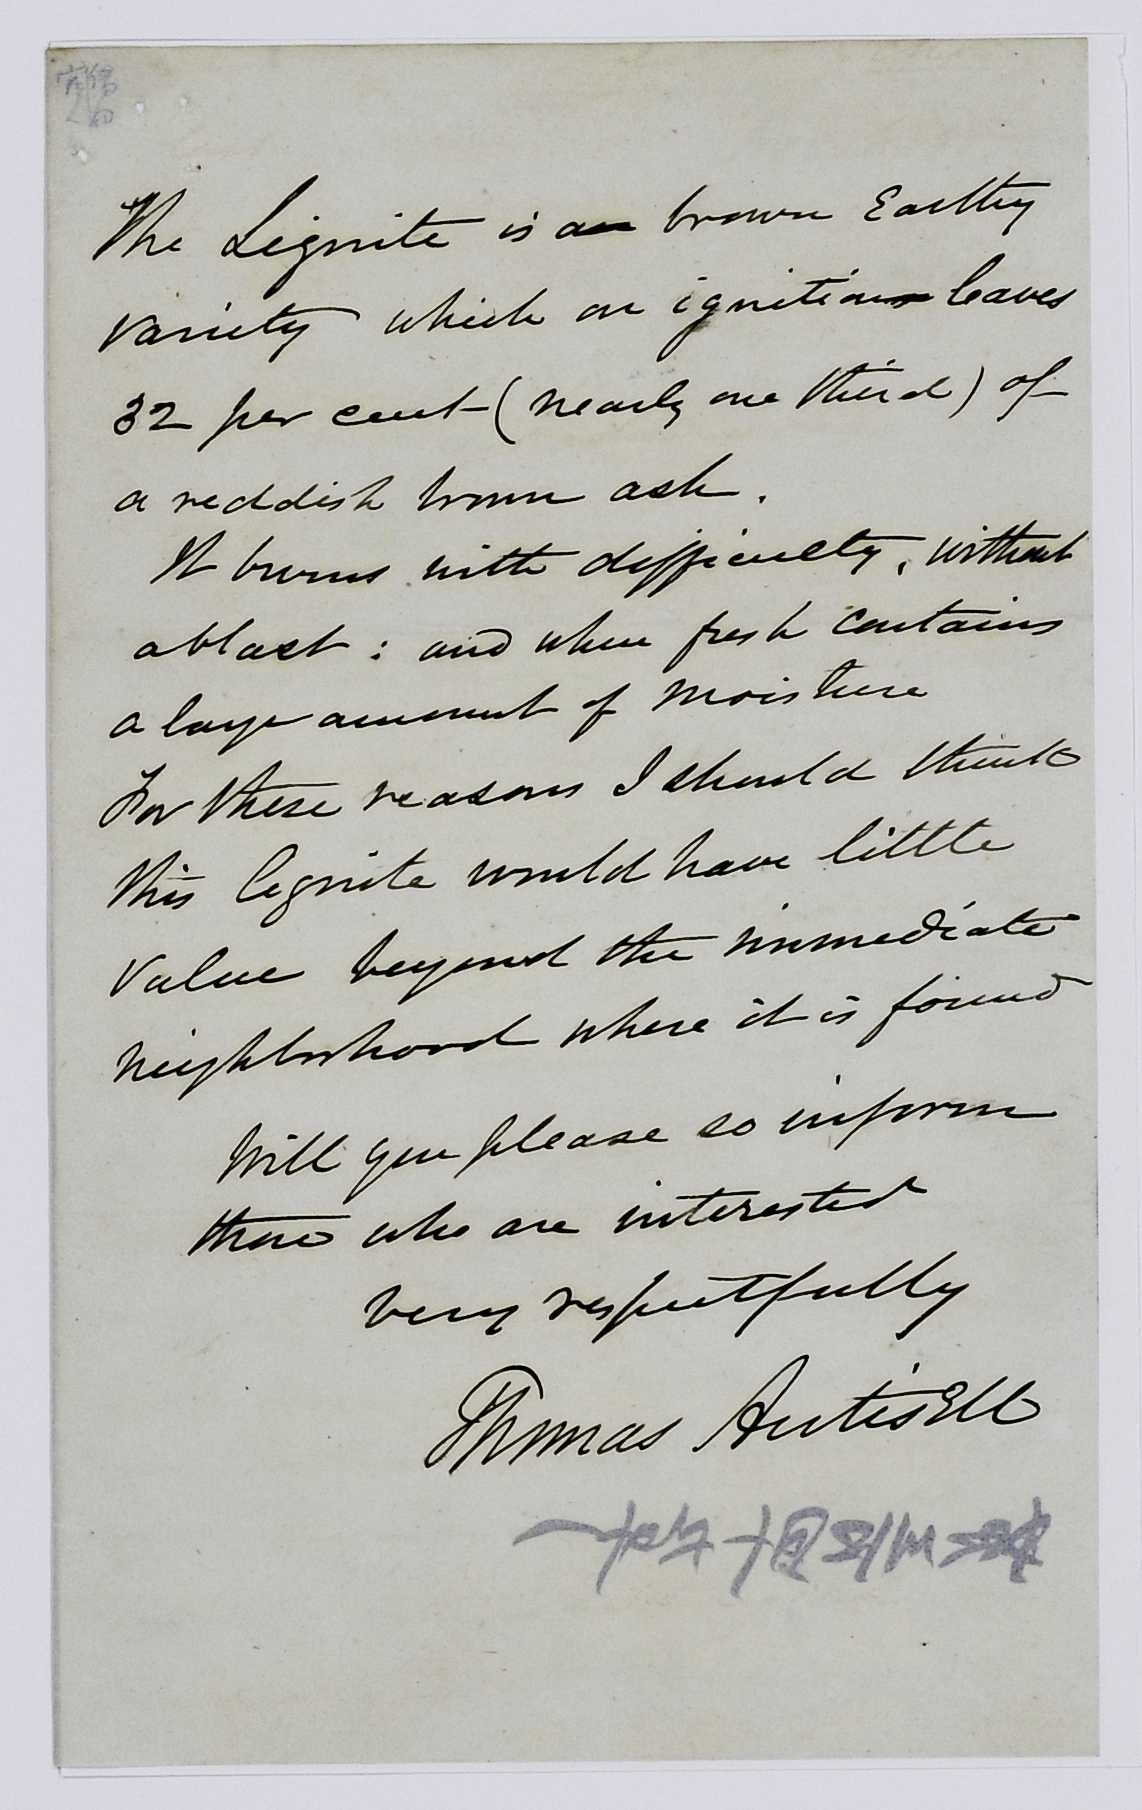 The Lignite is a brown Earthy
variety which on ignition leaves
32 per cent (nearly one third) of
a reddish brown ash.
It burns with difficulty, without
a blast: and when fresh contains
a large amount of moisture
For these reasons I should think
this lignite would have little
value beyond the immediate
neighborhood where it is found
Will you please so inform
those who are interested
very respectfully
Thomas Antisell